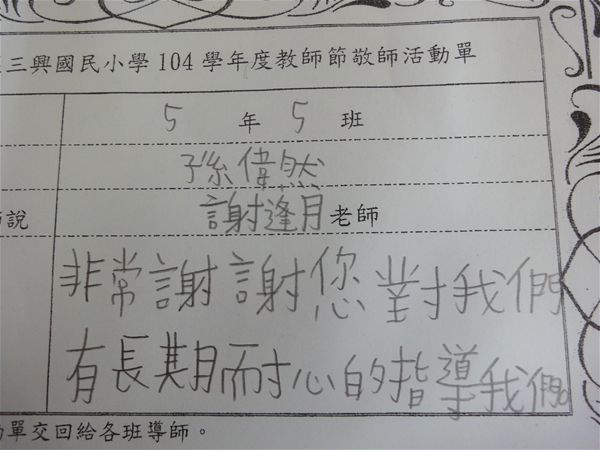 三興國民小學104學年度教師節敬師活動單
5年5班
孫偉然
說 謝逢月老師
非常謝謝您對我們
有長期耐心的指導我們。
單交回給各班導師。